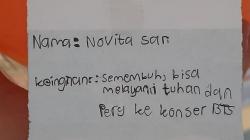 Nama: Novita sari
keinginan: sementuh, bisa
melayani tuhan dan
Pery ke konser BTS